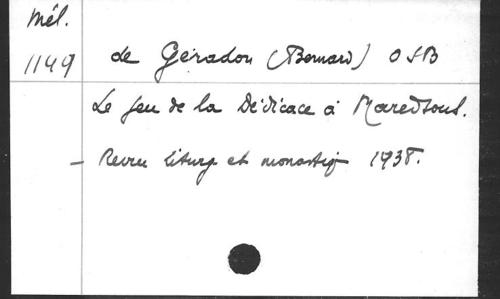 Mél.
1149
de Géradon (Bernard) OSB
Le feu de la Dédicace à Maredsous.
- Revue liturg et monastiq 1938.